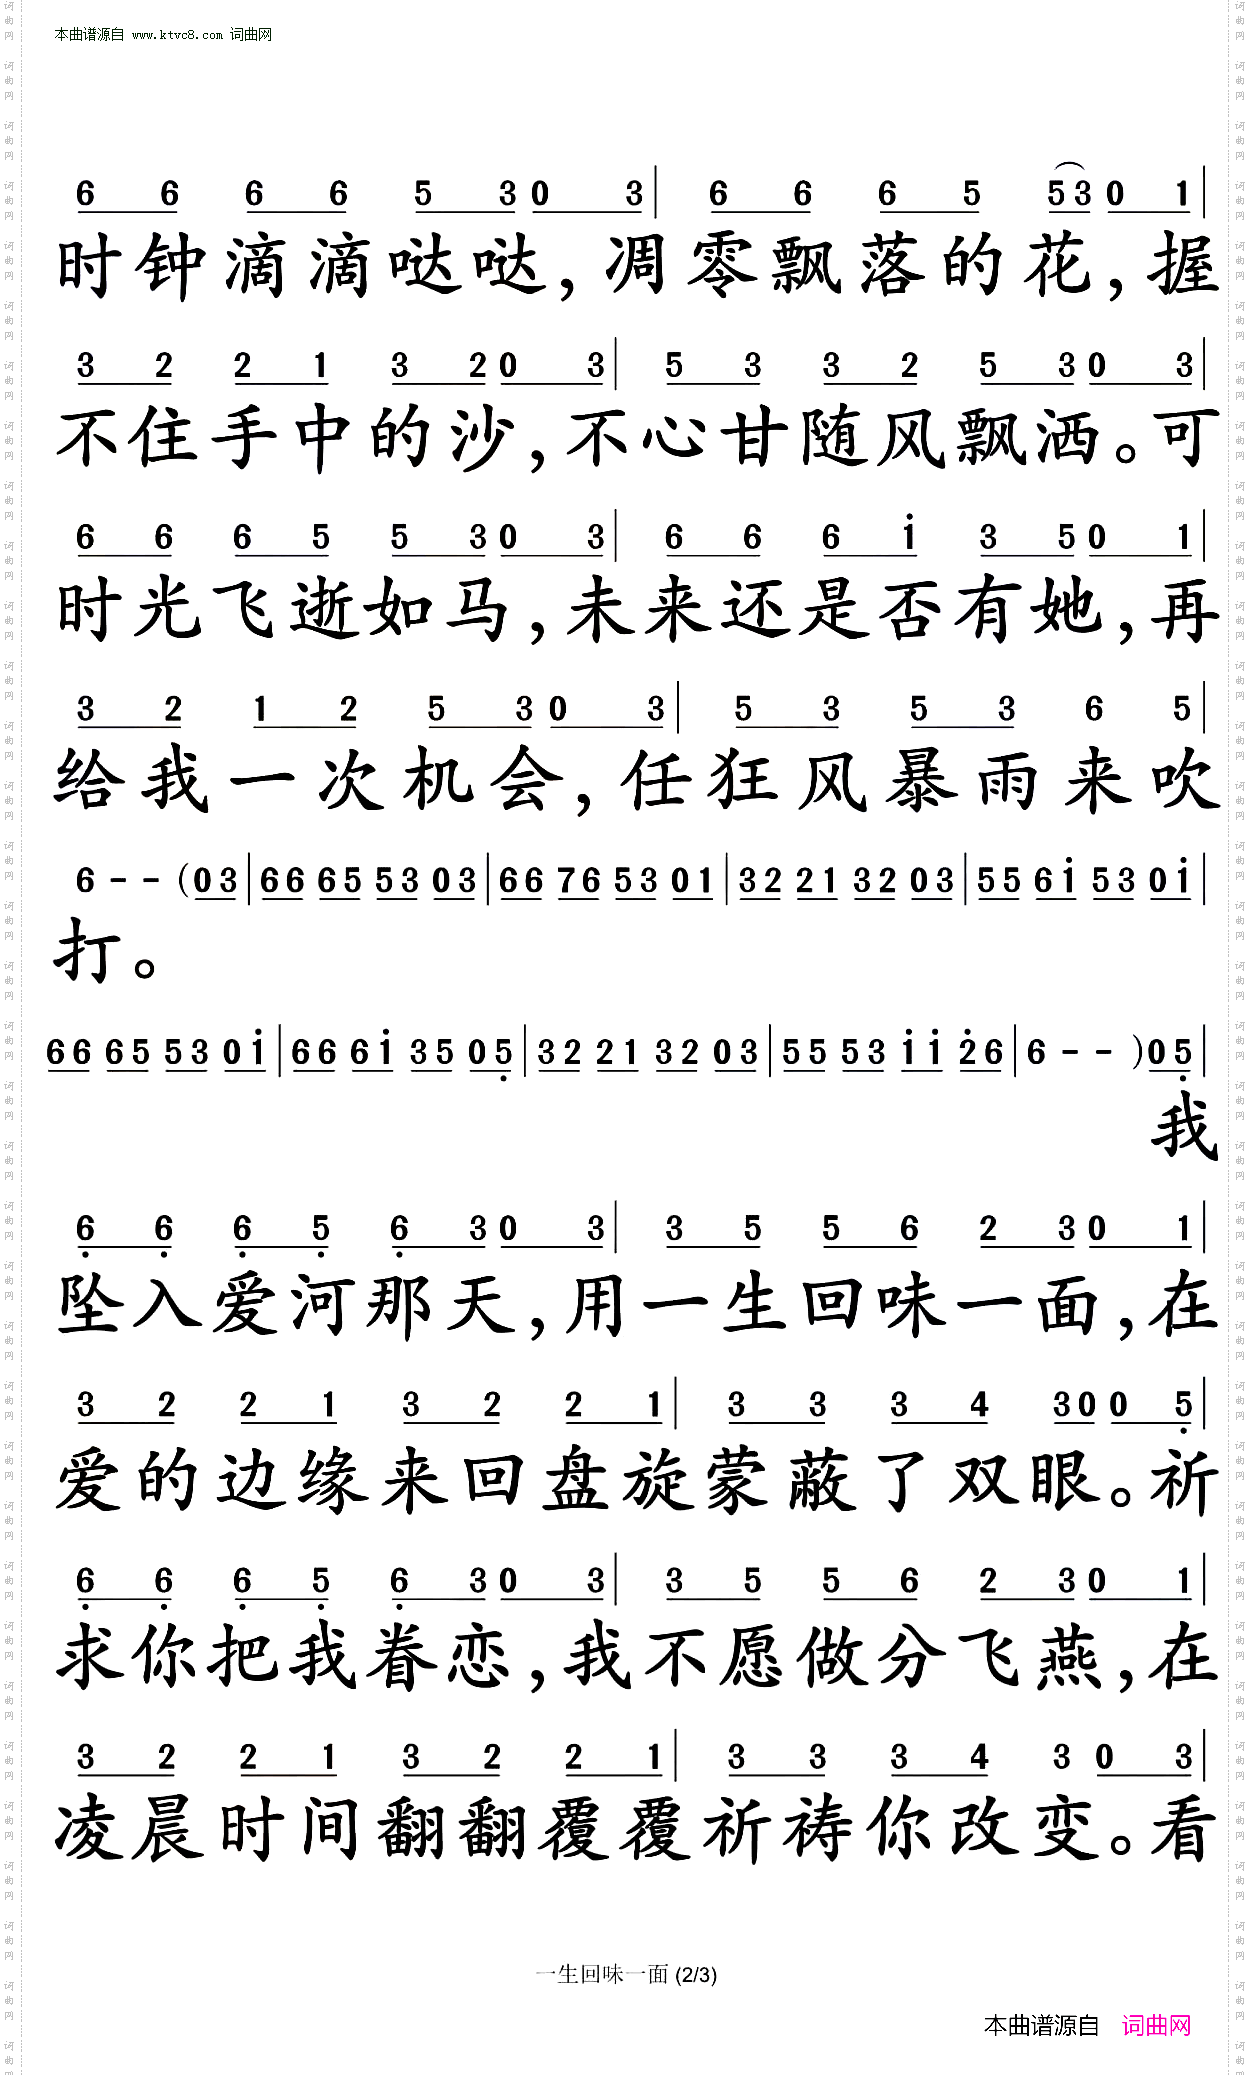 本曲谱源自 www.ktvc8.com 词曲网
6 6 6 6 5 3 0 3 | 6 6 6 5 5 3 0 1 |
时钟滴滴哒哒,凋零飘落的花,握
3 2 2 1 3 2 0 3 | 5 3 3 2 5 3 0 3 |
不住手中的沙,不心甘随风飘洒。可
6 6 6 5 5 3 0 3 | 6 6 6 i 3 5 0 1 |
时光飞逝如马,未来还是否有她,再
3 2 1 2 5 3 0 3 | 5 3 5 3 6 5 |
给我一次机会,任狂风暴雨来吹
6 - - (0 3 | 6 6 6 5 5 3 0 3 | 6 6 7 6 5 3 0 1 | 3 2 2 1 3 2 0 3 | 5 5 6 i 5 3 0 i |
打。
6 6 6 5 5 3 0 i | 6 6 6 i 3 5 0 5̣ | 3 2 2 1 3 2 0 3 | 5 5 5 3 i i 2̇ 6 | 6 - - ) 0 5̣ |
我
6̣ 6̣ 6̣ 5̣ 6̣ 3 0 3 | 3 5 5 6 2 3 0 1 |
坠入爱河那天,用一生回味一面,在
3 2 2 1 3 2 2 1 | 3 3 3 4 3 0 0 5̣ |
爱的边缘来回盘旋蒙蔽了双眼。祈
6̣ 6̣ 6̣ 5̣ 6̣ 3 0 3 | 3 5 5 6 2 3 0 1 |
求你把我眷恋,我不愿做分飞燕,在
3 2 2 1 3 2 2 1 | 3 3 3 4 3 0 3 |
凌晨时间翻翻覆覆祈祷你改变。看
一生回味一面 (2/3)
本曲谱源自 词曲网